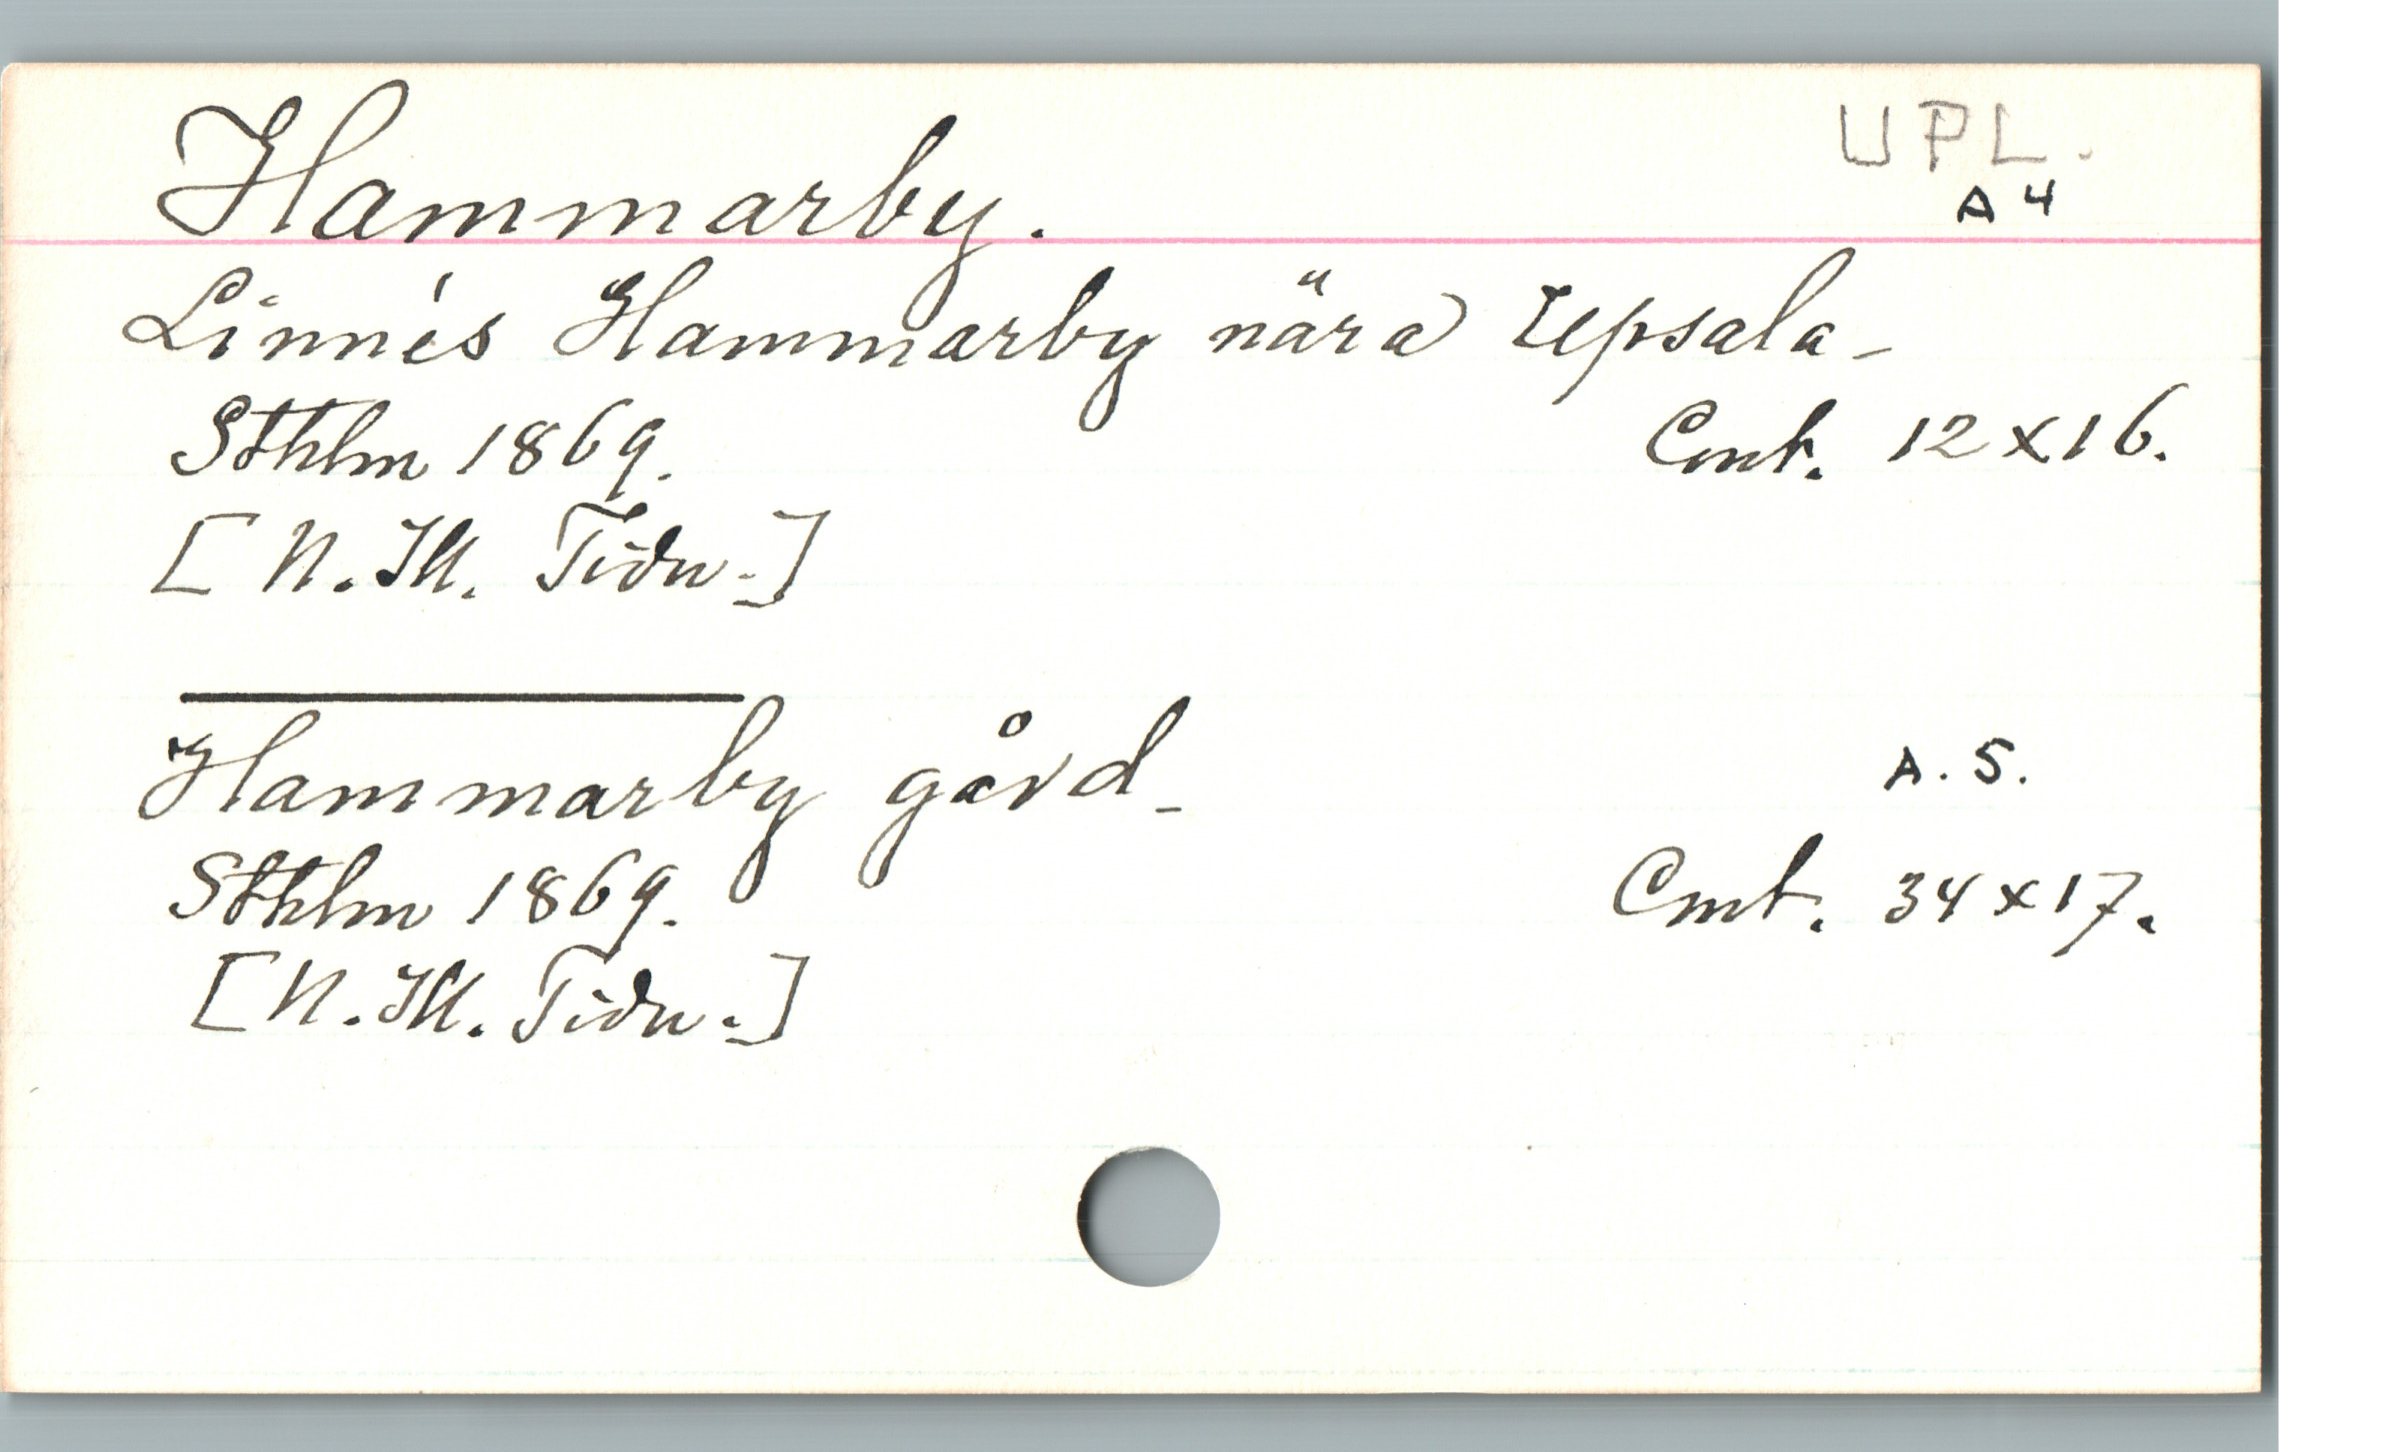 UPL.
Hammarby. A 4
Linnés Hammarby nära Upsala_
Sthlm 1869. Cmt. 12x16.
[N. Ill. Tidn.]
Hammarby gård_ A. 5.
Sthlm 1869. Cmt. 34x17.
[N. Ill. Tidn.]